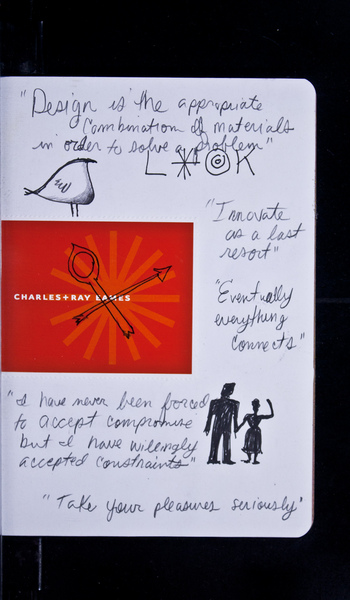 "Design is the appropriate
combination of materials
in order to solve a problem"
L**K
"Innovate
as a last
resort"
CHARLES+RAY EAMES
"Eventually
everything
connects"
"I have never been forced
to accept compromise
but I have willingly
accepted constraints"
"Take your pleasures seriously"